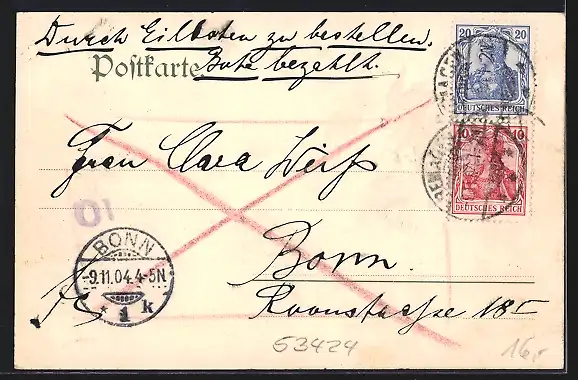 Durch Eilboten zu bestellen.
Postkarte
Bote bezahlt.
20 20
DEUTSCHES REICH
10 10
DEUTSCHES REICH
REMAGEN
Frau Clara Weiß
10
BONN
-9.11.04.4-5N
* 1 k
Bonn.
Roonstraße 18
63424
16,-